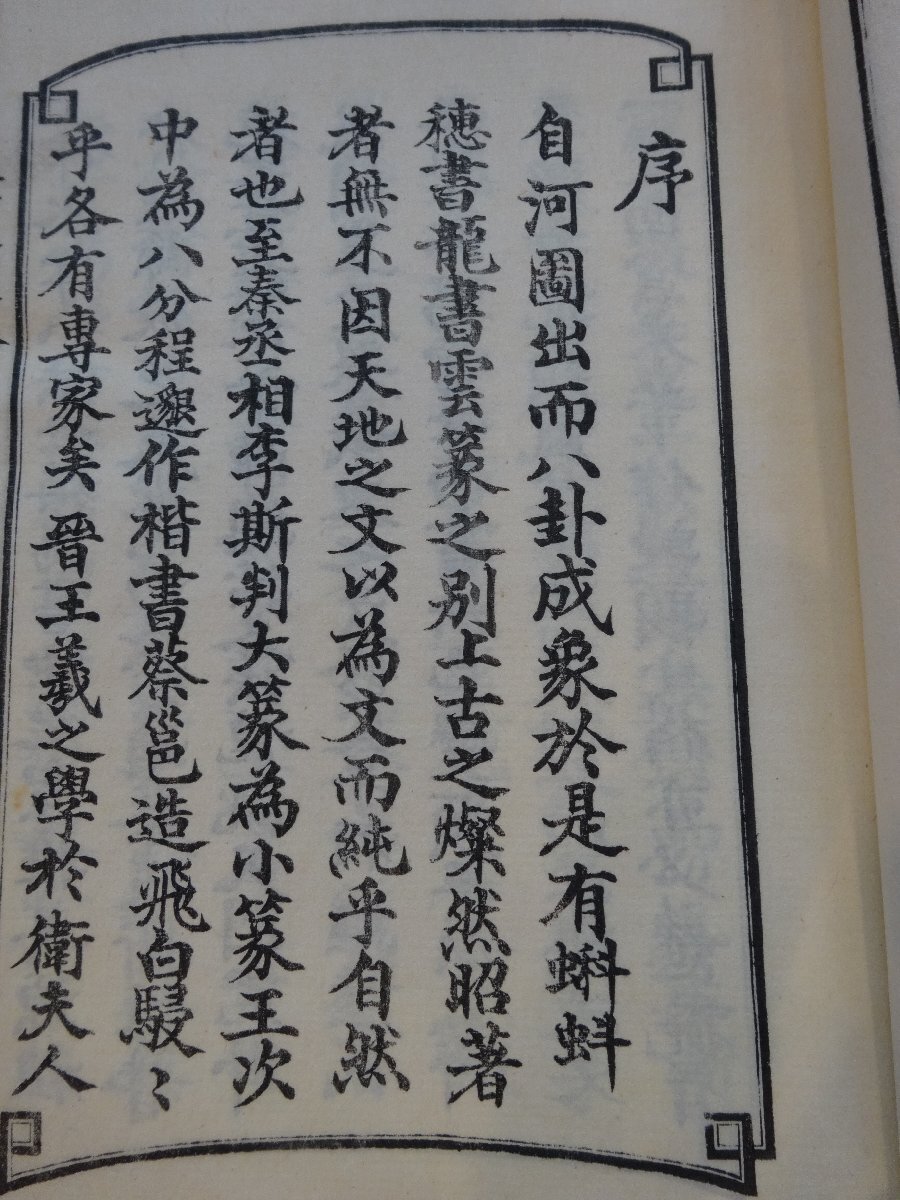 序
自河圖出而八卦成象於是有蝌蚪
穗書龍書雲篆之別上古之燦然昭著
者無不因天地之文以為文而純乎自然
者也至秦丞相李斯判大篆為小篆王次
中為八分程邈作楷書蔡邕造飛白駸〻
乎各有專家矣晉王羲之學於衛夫人